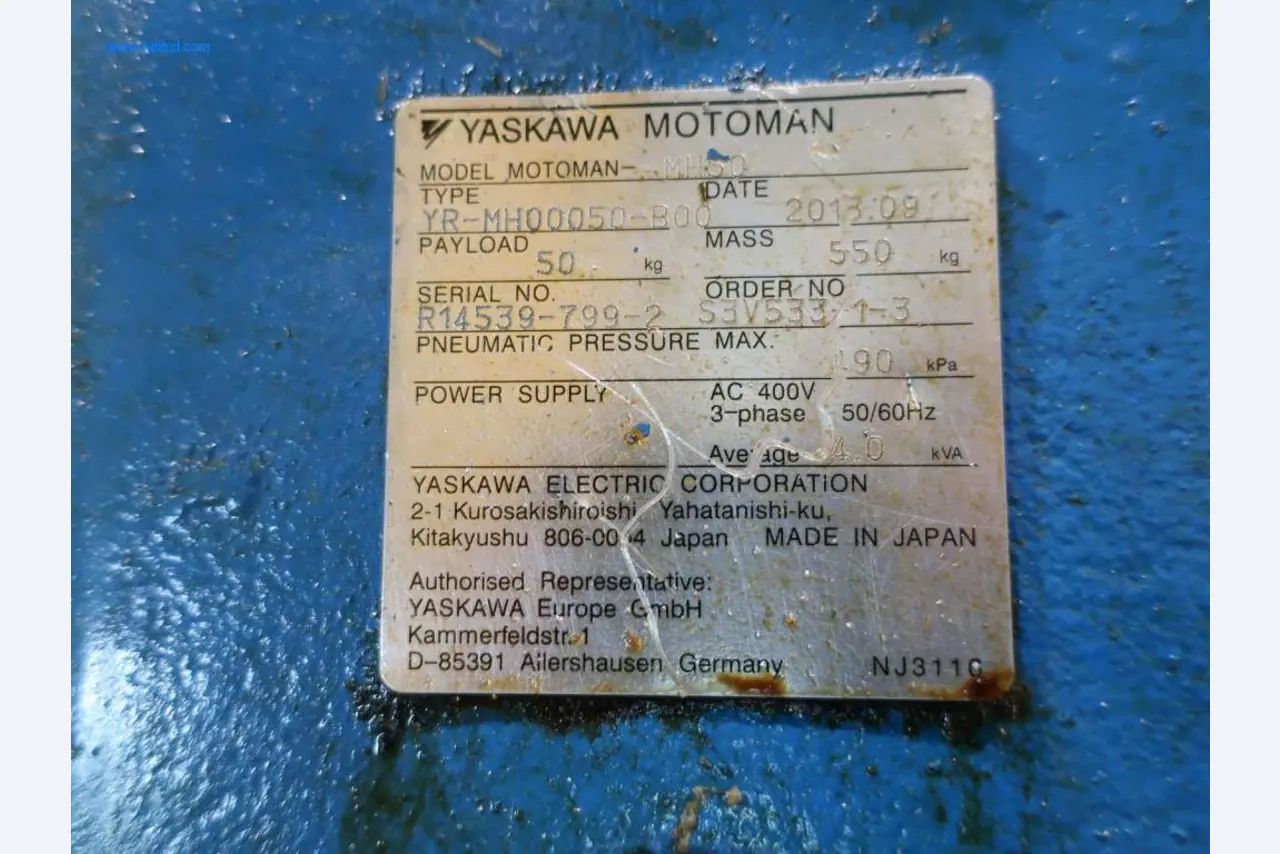 YASKAWA MOTOMAN
MODEL MOTOMAN- MH50
TYPE DATE
YR-MH00050-B00 2013.09
PAYLOAD MASS
50 kg 550 kg
SERIAL NO. ORDER NO
R14539-799-2
PNEUMATIC PRESSURE MAX.
kPa
POWER SUPPLY AC 400V
3-phase 50/60Hz
Average 4.0 kVA
YASKAWA ELECTRIC CORPORATION
2-1 Kurosakishiroishi, Yahatanishi-ku,
Kitakyushu Japan MADE IN JAPAN
Authorised Representative:
YASKAWA Europe GmbH
Kammerfeldstr.1
D-85391 Allershausen Germany